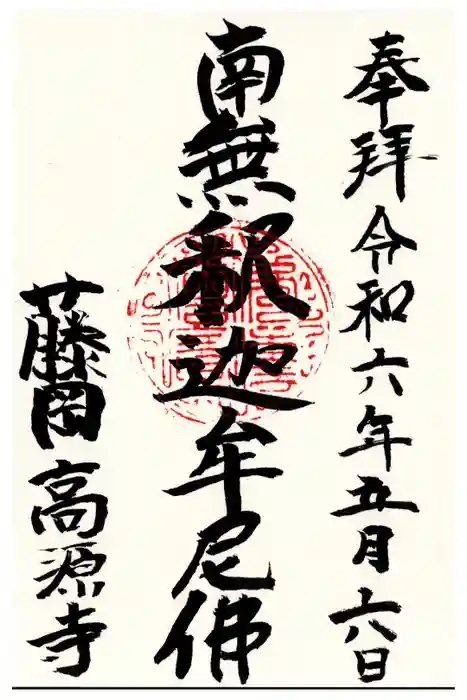 奉拝 令和六年五月十八日
南無釈迦牟尼佛
藤岡 高源寺